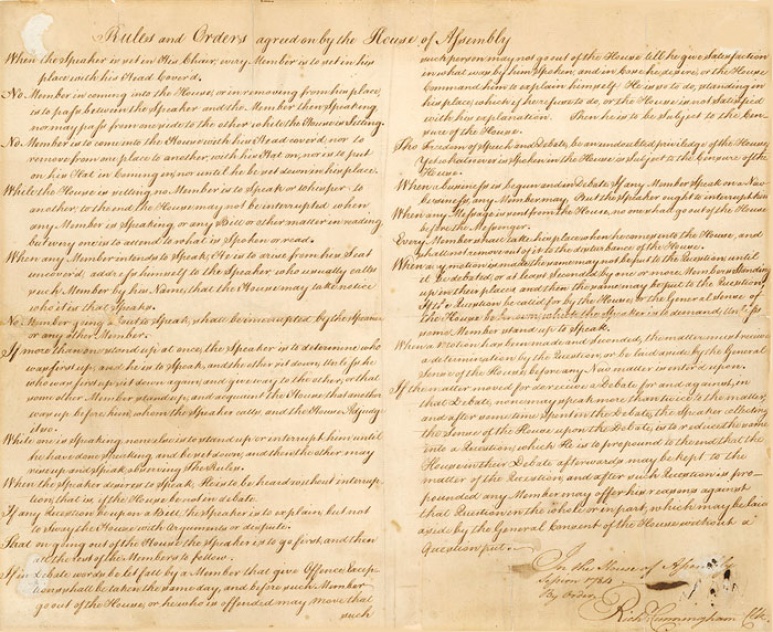 Rules and Orders agreed on by the House of Assembly
When the Speaker is set in His Chair, every Member is to set in his
place with his Head Cover'd.
No Member in coming into the House, or in removing from his place,
is to pass between the Speaker and the Member then Speaking
nor may pass from one side to the other while the House is sitting.
No Member is to come into the House with his Head cover'd, nor to
remove from one place to another, with his Hat on, nor is to put
on his Hat in Coming in, nor until he be set down in his place.
While the House is sitting no Member is to Speak or whisper to
another, to the end the House may not be interrupted when
any Member is Speaking, or any Bill or other matter in reading
but every one is to attend to what is Spoken or read.
When any Member intends to Speak, He is to arise from his Seat
uncover'd, address himself to the Speaker who usually calls
such Member by his Name, that the House may take notice
who it is that Speaks.
No Member going about to Speak, shall be interrupted by the Speaker
or any other Member.
If more than one stand up at once, the Speaker is to determine who
was first up, and he is to Speak, and the other sit down, Unless he
who was first up sit down again, and give way to the other, or that
some other Member stand up, and acquaint the House that another
was up before him, whom the Speaker calls, and the House Adjudge
it so.
While one is Speaking none else is to stand up or interrupt him until
he have done Speaking, and be set down, and then the other may
rise up and Speak observing The Rules.
When the Speaker desires to Speak, He is to be heard without interrup-
tion, that is, if the House be not in debate.
If any Question be upon a Bill, the Speaker is to explain, but not
to sway the House with Arguments or dispute.
That on going out of the House the Speaker is to go first, and then
all the rest of the Members to follow.
If in Debate words be let fall by a Member that give Offence, Excep-
tions shall be taken the same day, and before such Member
go out of the House, or he who is offended may Move that
such
such person may not go out of the House till he give Satisfaction
in what was by him Spoken, and in Case he desire, or the House
Command him to explain himself. He is so to do, standing in
his place, which if he refuse to do, or the House is not Satisfied
with his explanation. Then he is to be Subject to the Cen-
sure of the House.
Tho Freedom of Speech and Debate, be an undoubted priviledge of the House,
Yet whatsoever is Spoken in the House is Subject to the Censure of the
House.
When a business is begun and in Debate, If any Member Speak on a New
business, any Member may, But the Speaker ought to interrupt him
When any Message is sent from the House, no one shall go out of the House
before the Messenger.
Every Member shall take his place when he comes into the House, and
shall not remove out of it to the disturbance of the House.
When any motion is made the same may not be put to the Question, until
it be debated, or at least Seconded by one or more Members Standing
up in their places, and then the same may be put to the Question,
If the Question be called for by the House, or the General sense of
the House be known, which the Speaker is to demand, Unless
some Member stand up to Speak.
When a Motion has been made and Seconded, the matter must receive
a determination by the Question, or be laid aside by the General
Sense of the House, before any New matter is enter'd upon.
If the matter moved for do receive a Debate for and against, in
that Debate, none may speak more than twice to the matter,
and after some time Spent in the Debate, the Speaker collecting
the Sense of the House upon the Debate, is to reduce the same
into a Question, which He is to propound to the end that the
House in their Debate afterwards may be kept to the
matter of the Question, and after such Question is pro-
pounded any Member may offer his reasons against
that Question in the whole or in part, which may be laid
aside by the General Consent of the House without a
Question put.
In the House of Assembly
Session 1764
By Order
Rich. Cunningham Clk